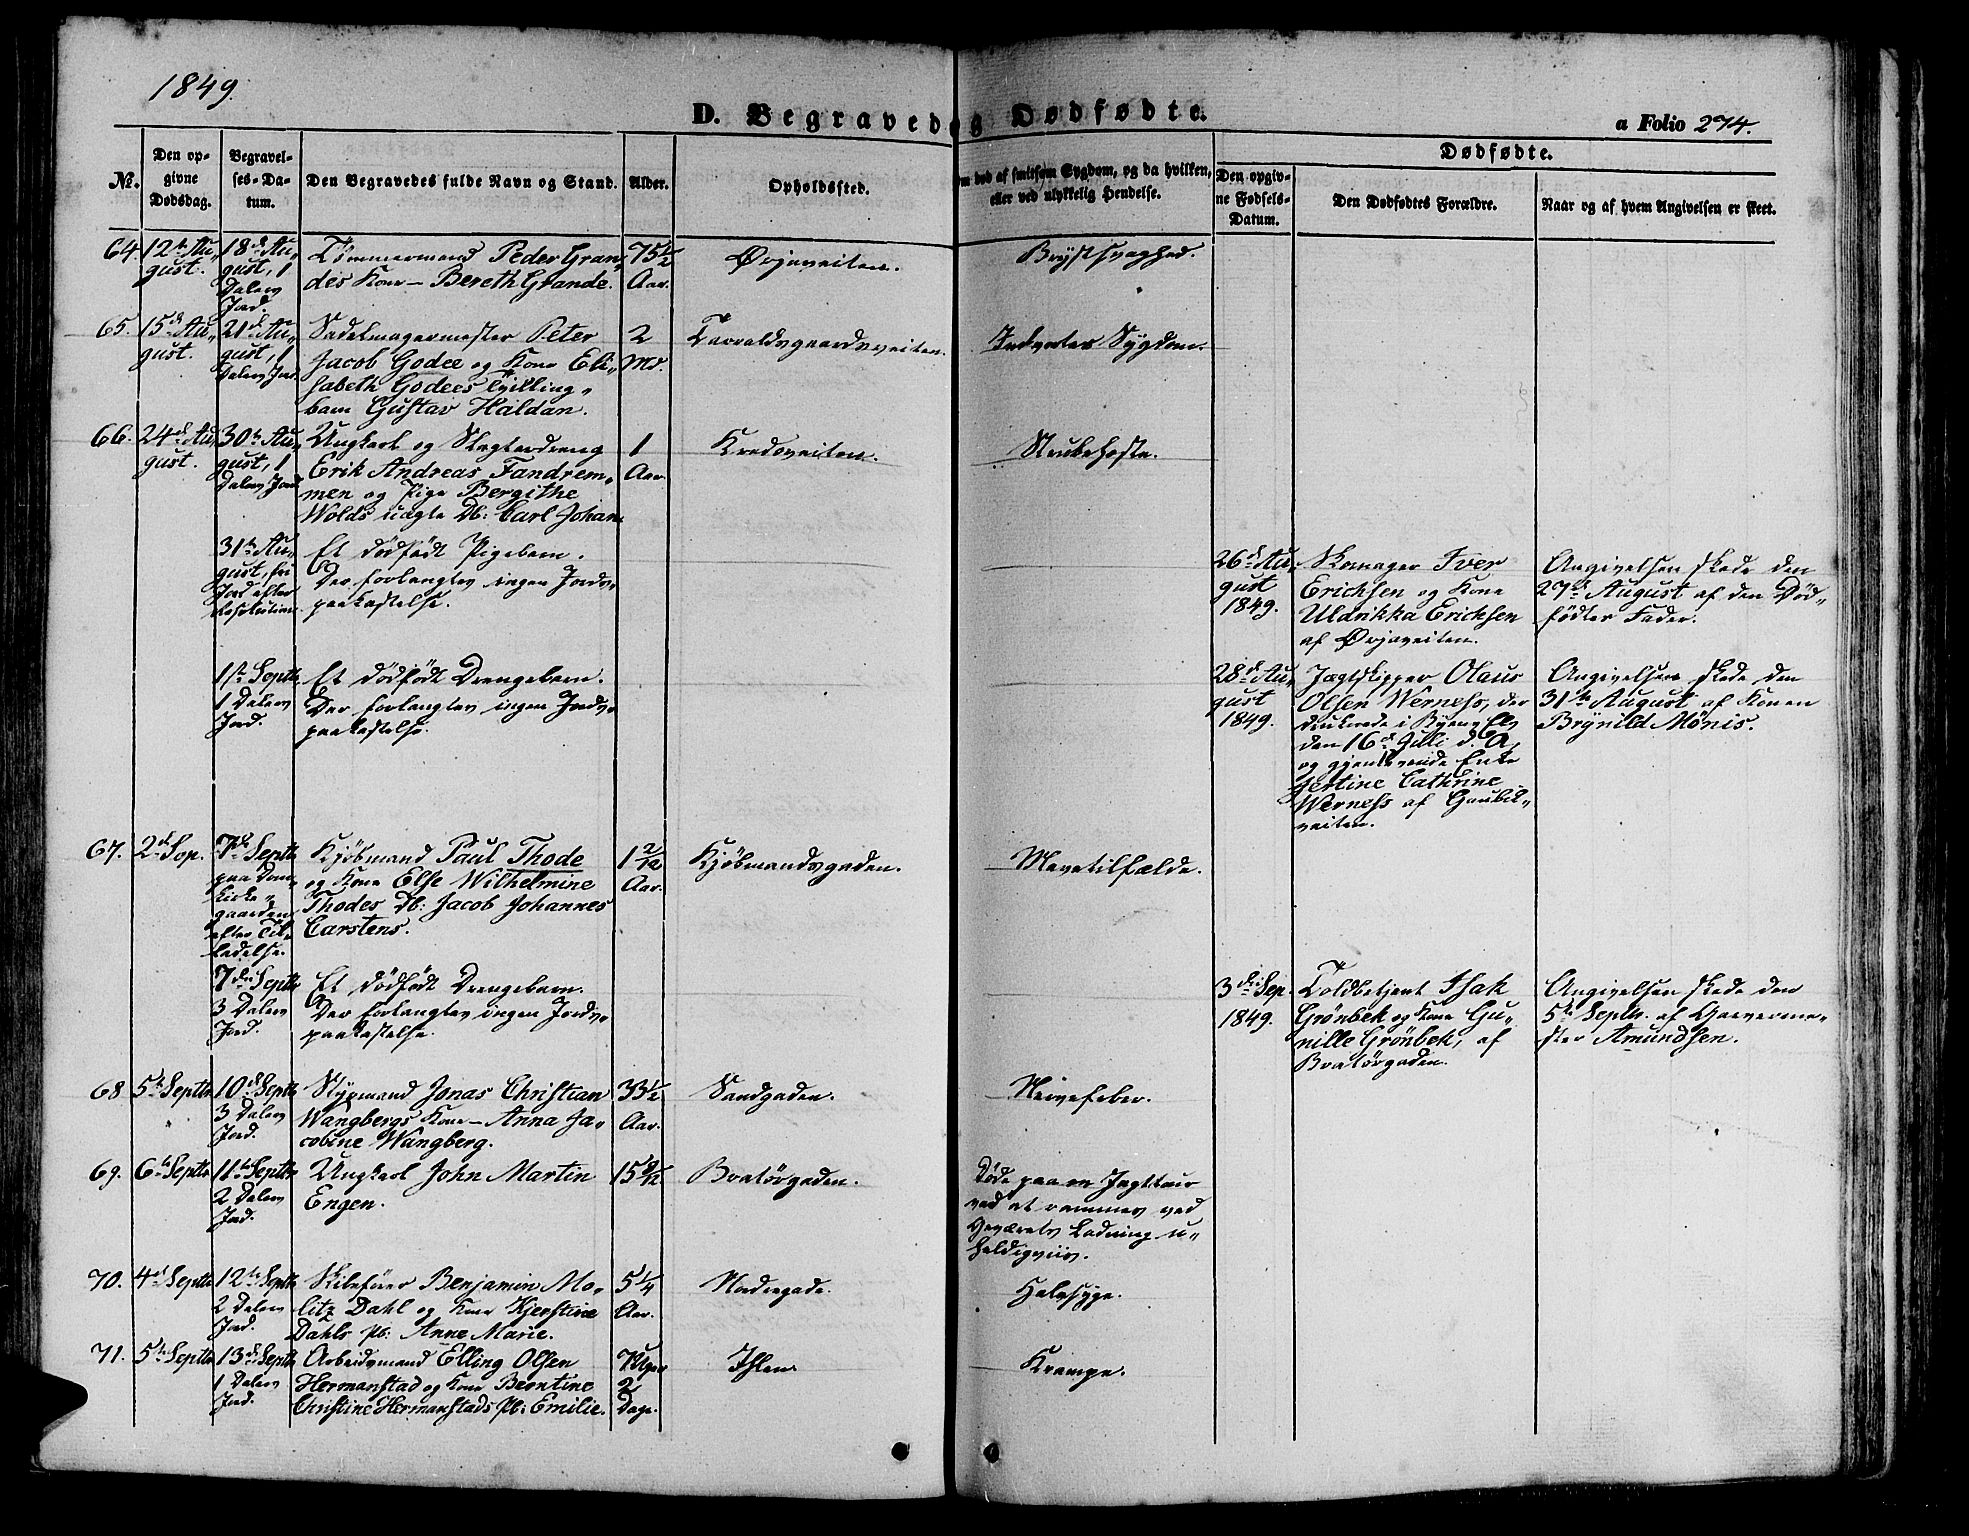 1849.
D. Begravede og Dødfødte.
a Folio 274.
No.
Den op-
givne
Dødsdag.
Begravel-
ses-Da-
tum.
Den Begravedes fulde Navn og Stand.
Alder.
Opholdssted.
død af smitsom Sygdom, og da hvilken,
eller ved ulykkelig Hendelse.
Dødfødte.
Den opgiv-
ne Fødsels-
Datum.
Den Dødfødtes Forældre.
Naar og af hvem Angivelsen er skeet.
64.
12te Au-
gust.
18de Au-
gust, 1
Dalers
Jord.
Tømmermand Peder Gran-
des Kone - Bereth Grande.
75 1/2
Aar.
Ørjaveiten.
Brystsvaghed.
65.
15de Au-
gust.
21de Au-
gust, 1
Dalers Jord.
Sadelmagermester Peter
Jacob Godee og Kone Eli-
sabeth Godees Tvilling-
barn Gustav Haldan.
2
Md.
Taraldsgaardsveiten.
Indvortes Sygdom.
66.
24de Au-
gust.
30te Au-
gust, 1
Dalers Jord.
Ungkarl og Slagterdreng
Erik Andreas Fandrem-
men og Pige Bergithe
Wolds uægte Db: Carl Johan.
1
Aar.
Kredsveiten.
Strubehoste.
31te Au-
gust, fri
Jord efter
Resolution.
Et dødfødt Pigebarn.
Der forlangtes ingen Jords-
paakastelse.
26de Au-
gust
1849.
Skomager Iver
Erichsen og Kone
Uldrikka Erichsen
af Ørjaveiten.
Angivelsen skede den
27de August af den Død-
fødtes Fader.
1ste Septbr
1 Dalers
Jord.
Et dødfødt Drengebarn.
Der forlangtes ingen Jords-
paakastelse.
28de Au-
gust
1849.
Jægtskipper Olaus
Olsen Werness, der
druknede i Byens Elv
den 16de Juli d. A.
og gjenlevende Enke
Jertine Cathrine
Werness af Gaubek-
veiten.
Angivelsen skede den
31te August af Konen
Brynild Mønis.
67.
2de Sep.
7de Septbr
paa Dom-
kirke-
gaarden
efter Til-
ladelse.
Kjøbmand Paul Thode
og Kone Else Wilhelmine
Thodes Db: Jacob Johannes
Carstens.
1 2/12
Aar.
Kjøbmandsgaden.
Mavetilfælde.
7de Septbr
3 Dalers
Jord.
Et dødfødt Drengebarn.
Der forlangtes ingen Jords-
paakastelse.
3die Sep.
1849.
Toldbetjent Isak
Grønbek og Kone Gu-
nille Grønbek, af
Bratørgaden.
Angivelsen skede den
5te Septbr. af Garverme-
ster Amundsen.
68
5te Septbr
10de Septbr
3 Dalers
Jord.
Styrmand Jonas Christian
Wangbergs Kone - Anna Ja-
cobine Wangberg.
33 1/2
Aar.
Sandgaden.
Nervefeber.
69.
6te Septbr
11te Septbr
2 Dalers
Jord.
Ungkarl John Martin
Engen.
15 8/12
Bratørgaden.
Døde paa en Jagttour
ved at rammes ved
Geværets Ladning u-
heldigviis.
70.
4de Septbr
12te Septbr
2 Dalers
Jord.
Skibsfører Benjamin Mo-
litz Dahl og Kone Kjerstine
Dahls Pb: Anne Marie.
5 1/4
Aar.
Nordregade.
Halssyge.
71.
5te Septbr
13de Septbr
1 Dalers
Jord.
Arbeidsmand Elling Olsen
Hermanstad og Kone Berntine
Christine Hermanstads Pb: Emilie.
7 Uger
2
Dage.
Ihlen.
Krampe.